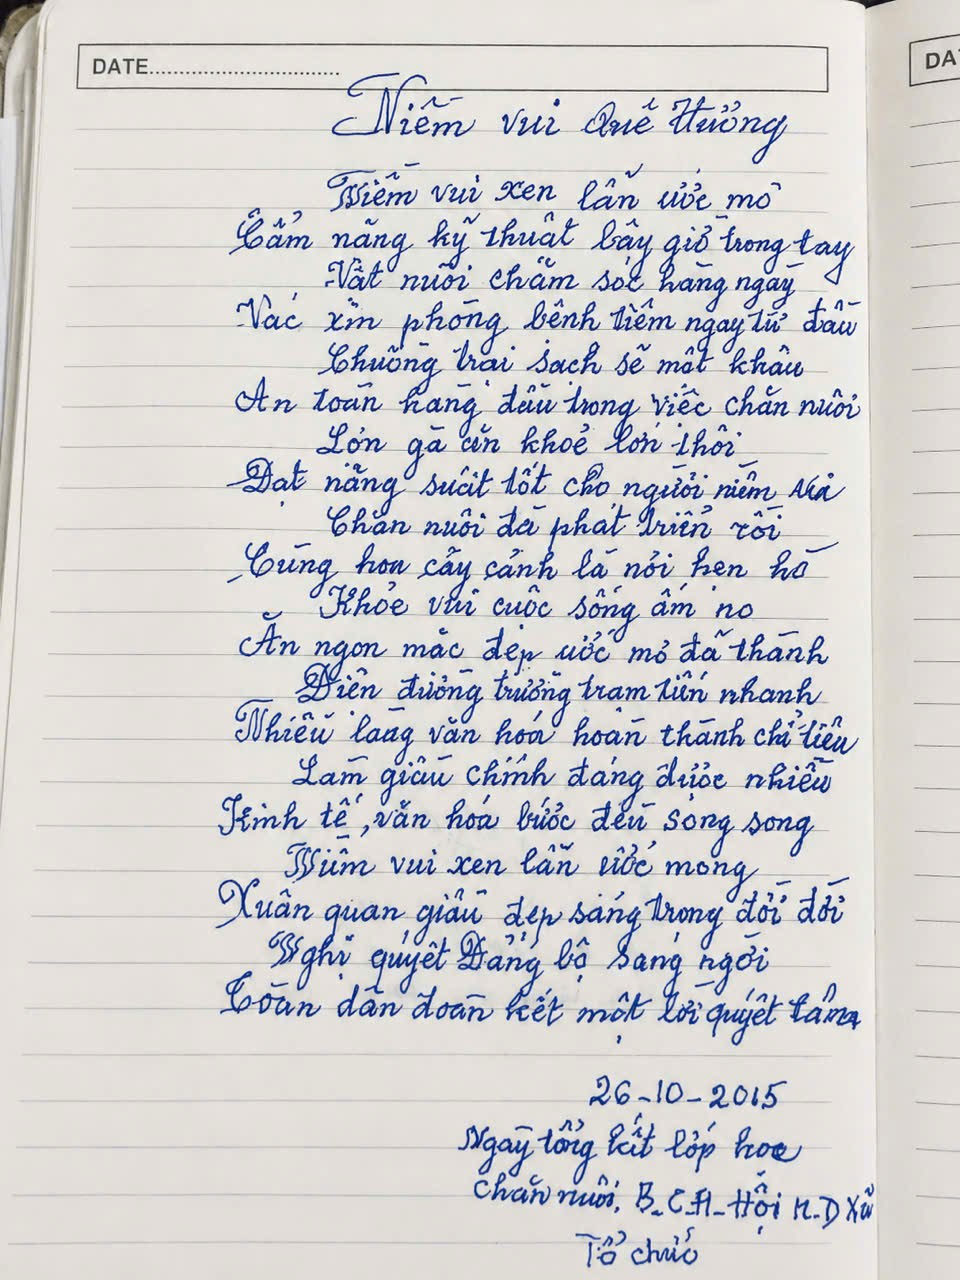 DATE
DA
Niềm vui Quê Hương
Niềm vui xen lẫn ước mơ
Cẩm năng kỹ thuật bây giờ trong tay
Vật nuôi chăm sóc hàng ngày
Vác xin phòng bệnh tiêm ngay từ đầu
Chuồng trại sạch sẽ mát khâu
An toàn hàng đầu trong việc chăn nuôi
Lợn gà ăn khoẻ lớn thôi
Đạt năng suất tốt cho người niềm
Chăn nuôi đã phát triển rồi
Cùng hoa cây cảnh là nơi hẹn hò
Khỏe vui cuộc sống ấm no
Ăn ngon mặc đẹp ước mơ đã thành
Điện đường trường trạm tiến nhanh
Nhiều làng văn hoá hoàn thành chỉ tiêu
Làm giầu chính đáng được nhiều
Kinh tế, văn hóa bước đều song song
Niềm vui xen lẫn ước mong
Xuân quan giầu đẹp sáng trong đời đời
Nghị quyết Đảng bộ sáng ngời
Toàn dân đoàn kết một lời quyết tâm
26-10-2015
Ngày tổng kết lớp học
chăn nuôi. B.C.H-Hội N.D Xã
Tổ chức